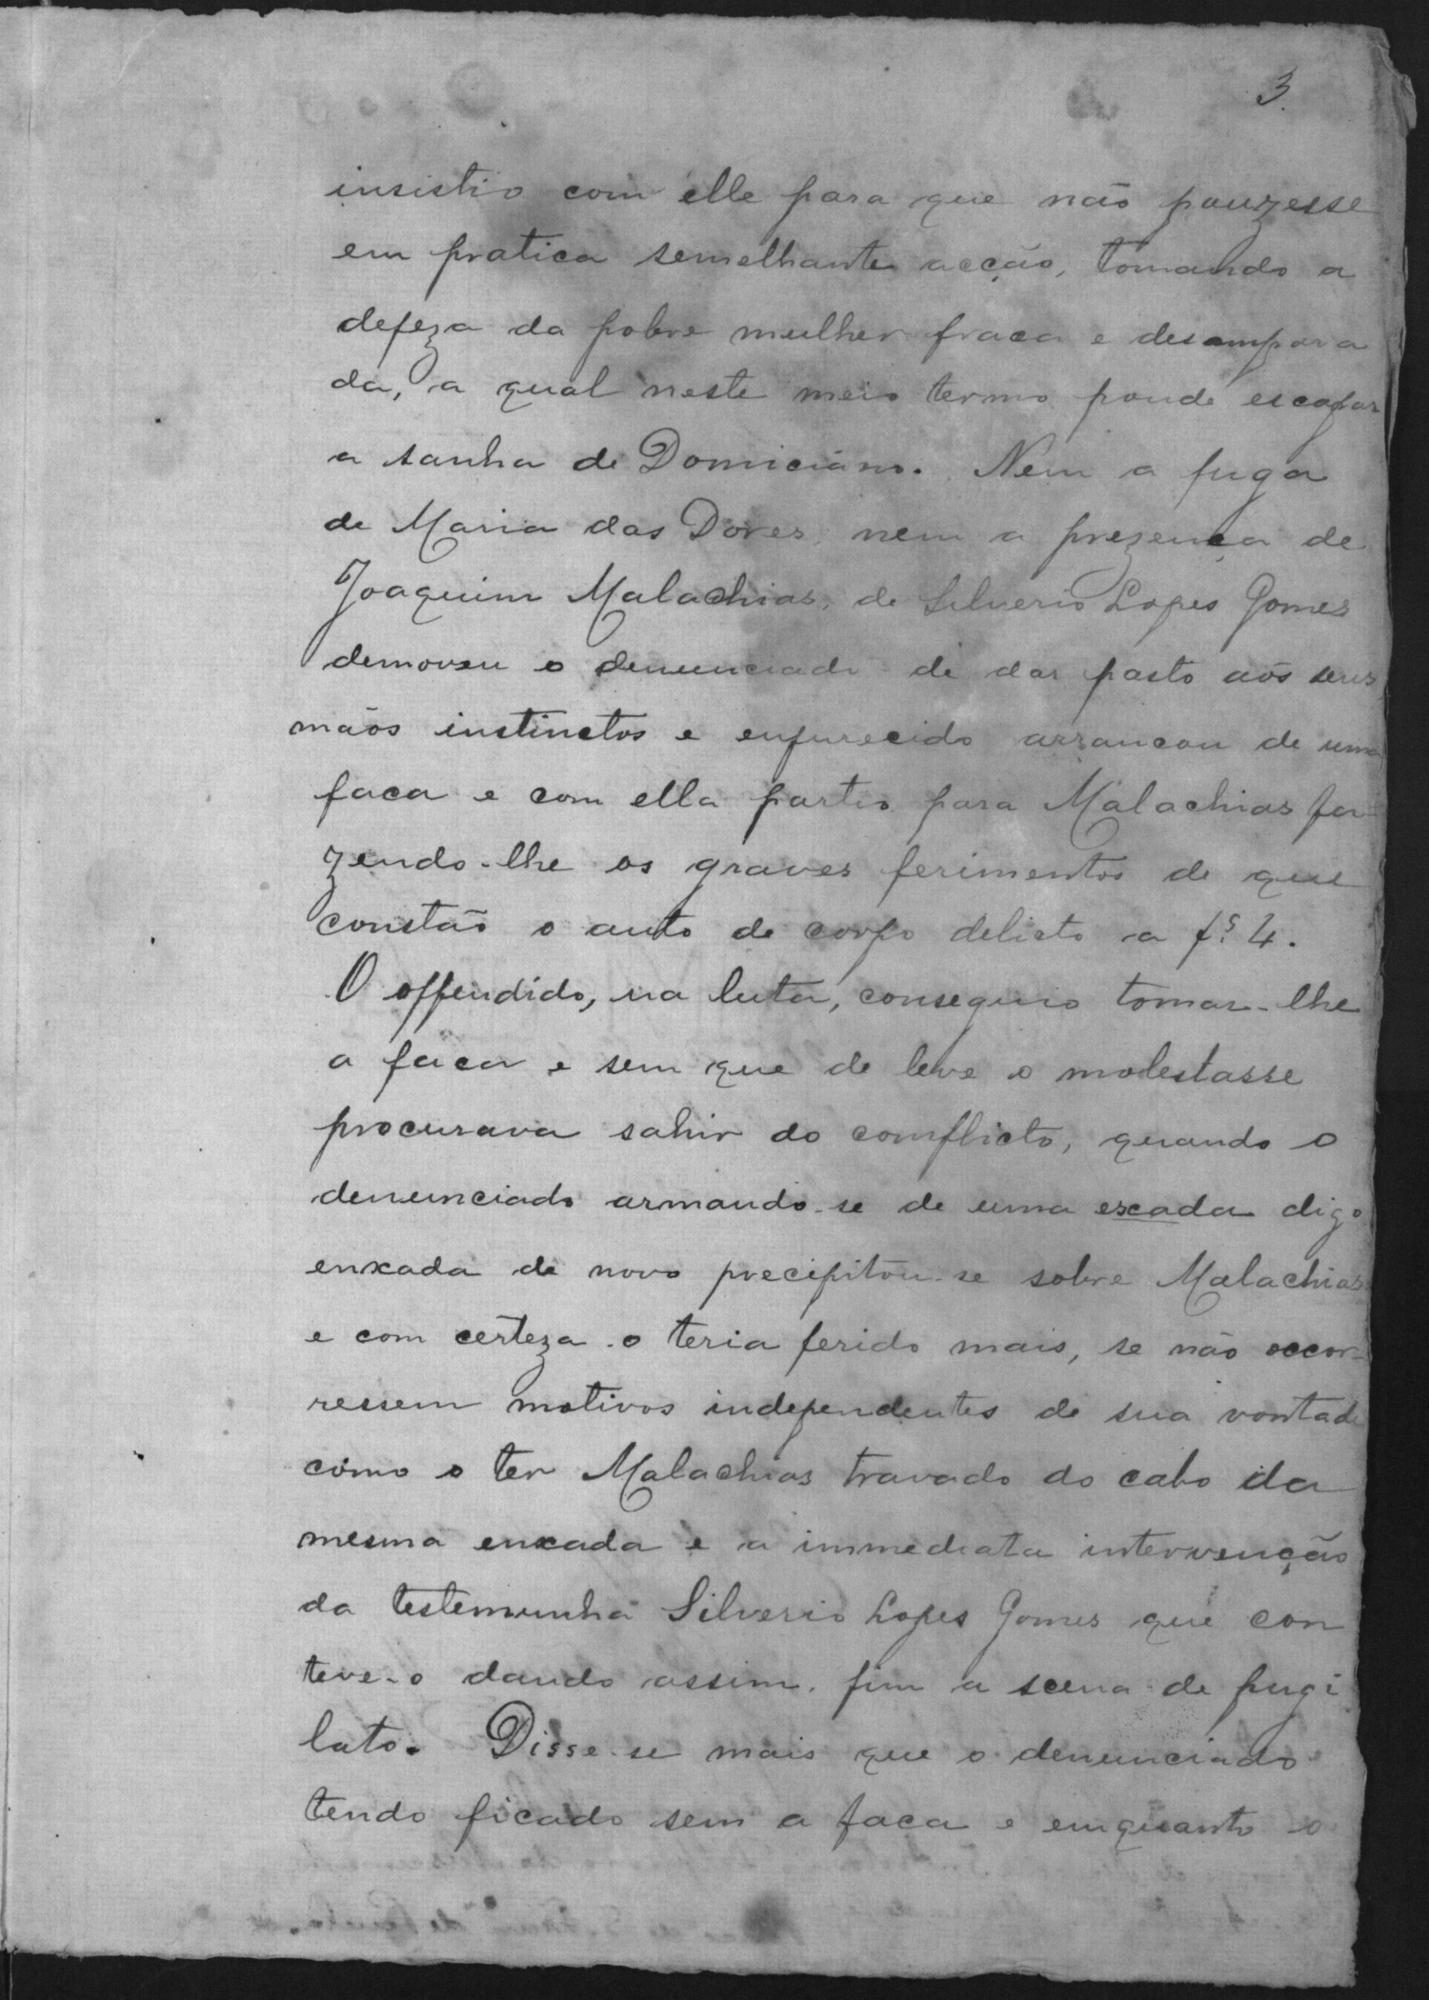 3.
insistio com elle para que não pouzesse
em pratica semelhante acção, tomando a
defeza da pobre mulher fraca e desampara
da, a qual neste meio termo poude escapar
a sanha de Domiciano. Nem a fuga
de Maria das Dores, nem a prezença de
Joaquim Malachias, de Silverio Lopes Gomes
demoveu o denunciado de dar pasto aos seus
mãos instinctos e enfurecido arrancou de uma
faca e com ella partio para Malachias fa-
zendo-lhe os graves ferimentos de que
constão o auto de corpo delicto a fs. 4.
O offendido, na luta, conseguio tomar-lhe
a faca e sem que de leve o molestasse
procurava sahir do comflicto, quando o
denunciado armando-se de uma escada digo
enxada de novo precipitou-se sobre Malachias
e com certeza o teria ferido mais, se não occor-
ressem motivos independentes de sua vontade
como o ter Malachias travado do cabo da
mesma enxada e a immediata intervenção
da testemunha Silverio Lopes Gomes que con
teve-o dando assim fim a scena de pugi
lato. Disse-se mais que o denunciado
tendo ficado sem a faca e emquanto o